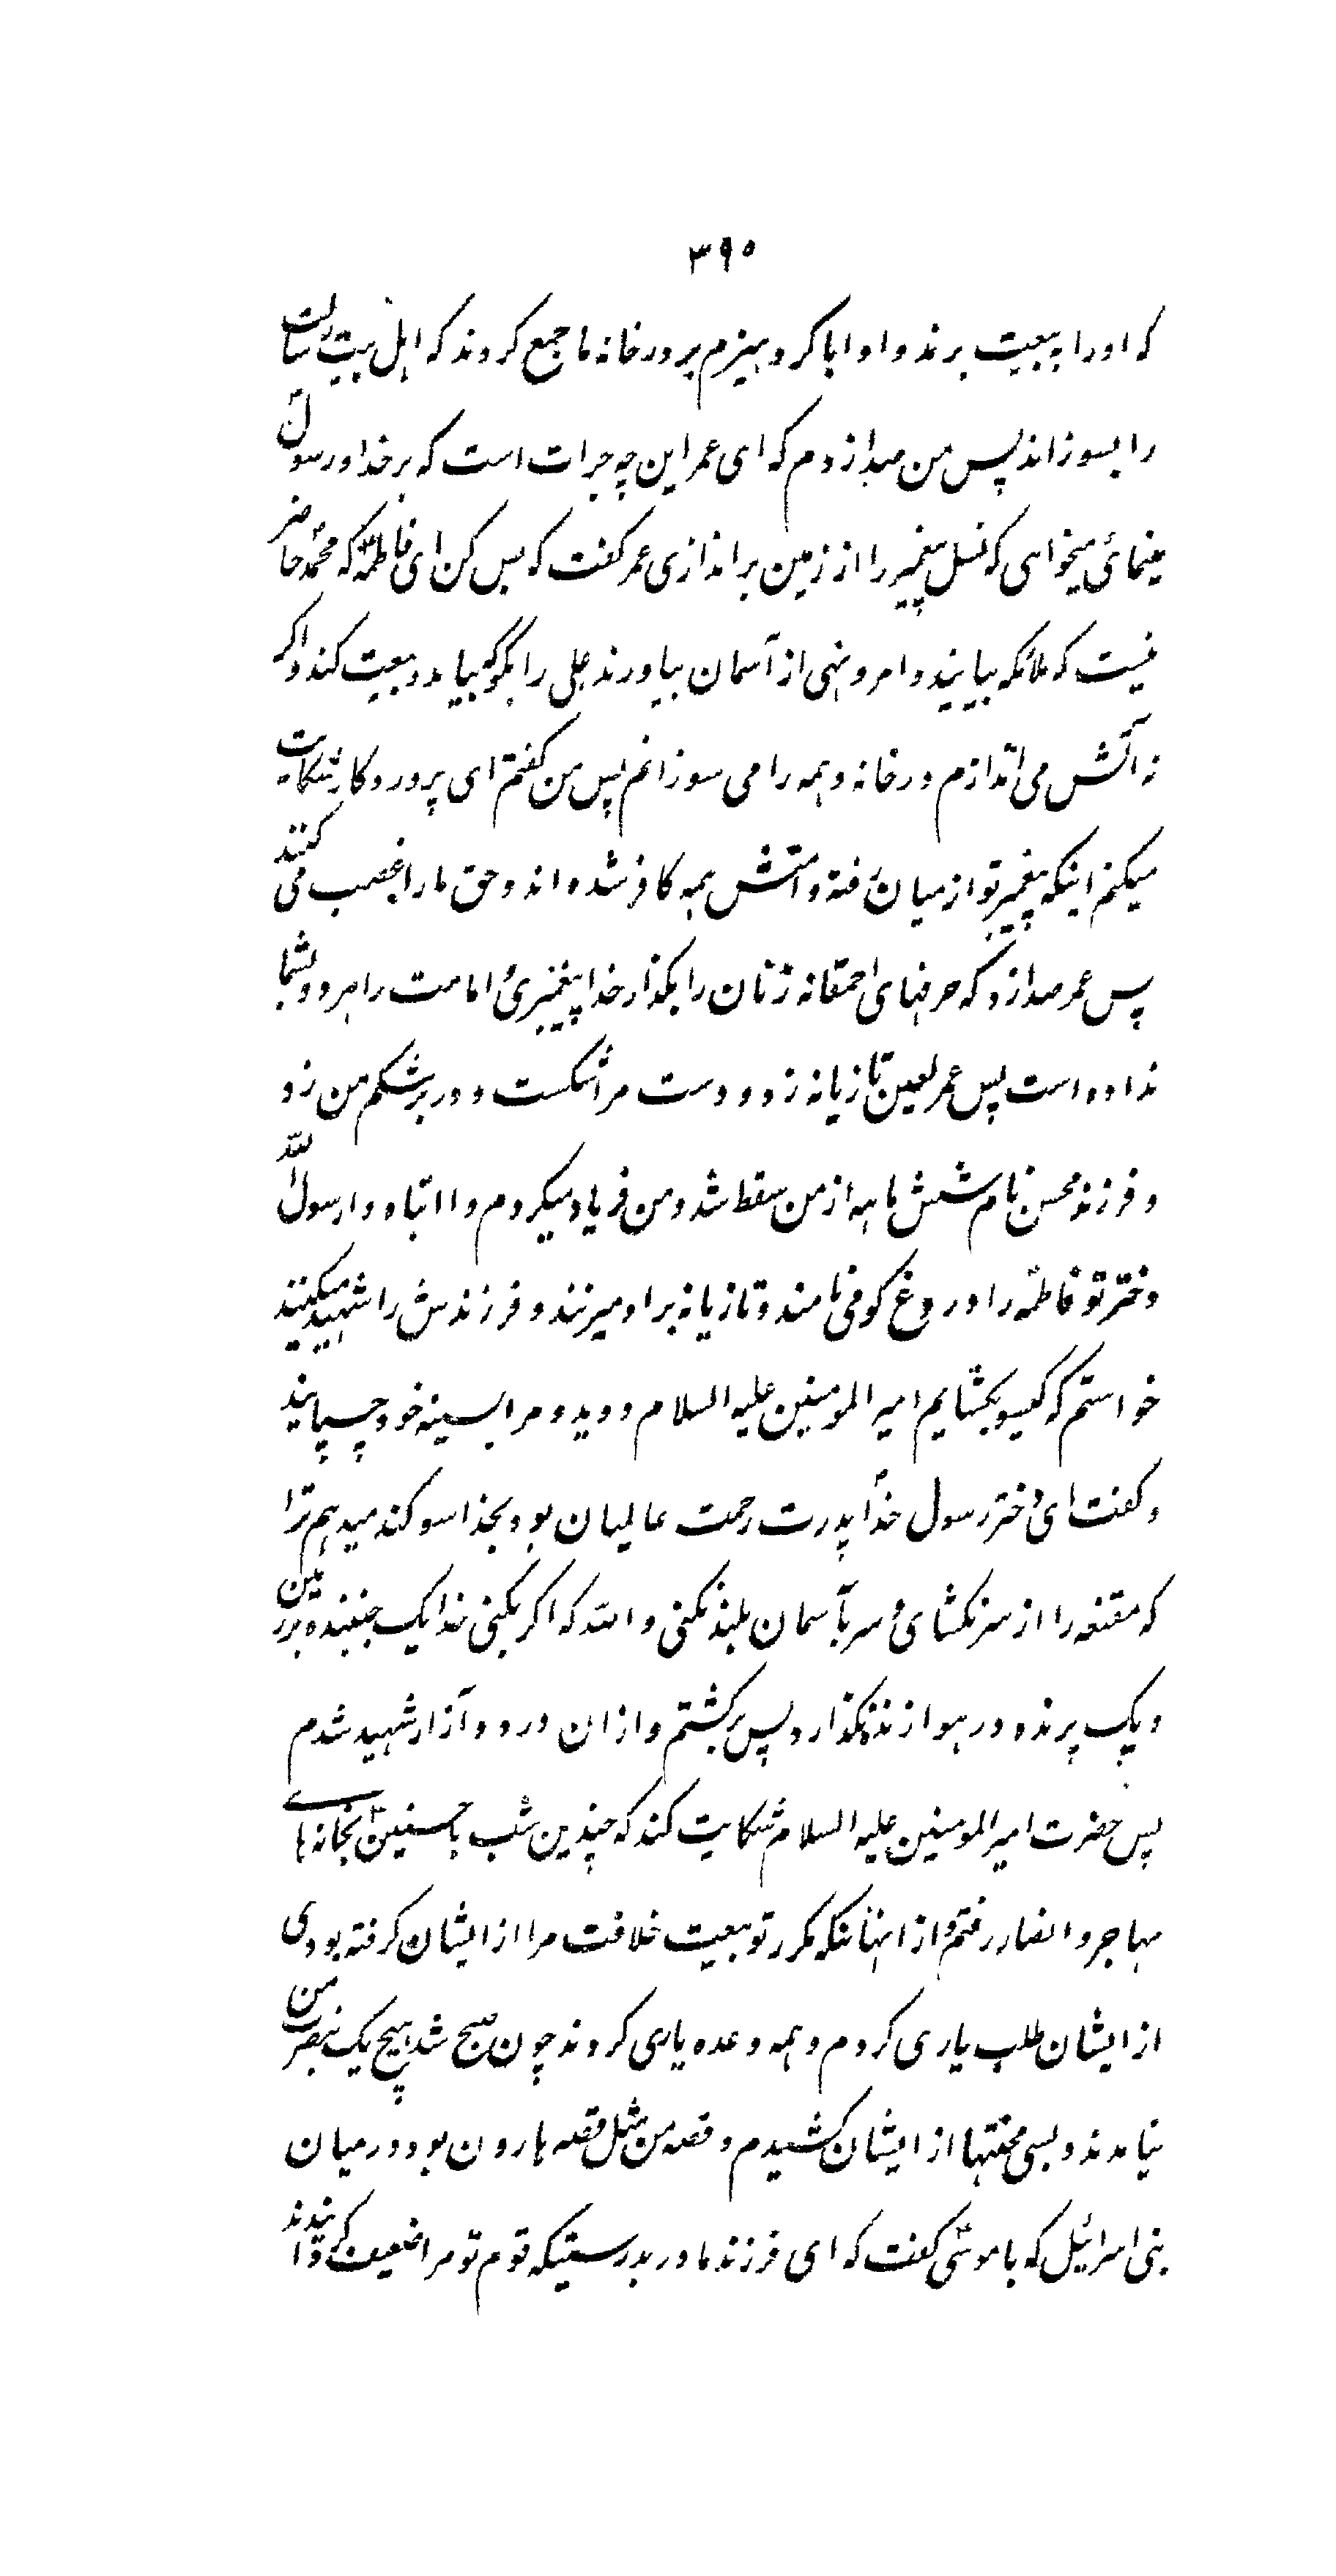 ۳۹۵
که اورا به بیعت برند و او ابا کرد هیزم بر در خانه ما جمع کردند که اهل بیت رسالت
را بسوزانند پس من صدا زدم که ای عمر این چه جرات است که بر خدا و رسول
مینمائی میخواهی که نسل پیغمبر را از زمین براندازی عمر گفت که بس کن ای فاطمهؑ که محمدؐ حاضر
نیست که ملائکه بیایند و امر و نهی از آسمان بیاورند علی را بگو بیاید و بیعت کند و اگر
نه آتش می اندازم در خانه و همه را می سوزانم پس من گفتم ای پروردگار شکایت
میکنم اینکه پیغمبر تو از میان رفته و امتش همه کافر شده اند و حق ما را غصب می کنند
پس عمر صدا زد که حرفهای احمقانه زنان را بگذار خدا پیغمبری و امامت را هر دو بشما
نداده است پس عمر لعین تازیانه زد و دست مرا شکست و در بر شکم من زد
و فرزند محسن نام شش ماهه از من سقط شد و من فریاد میکردم وا ابتاه وا رسول الله
دختر تو فاطمهؑ را دروغ گو می نامند و تازیانه بر او میزنند و فرزندش را شهید میکنند
خواستم که گیسو بگشایم امیر المومنین علیه السلام دوید و مرا بسینه خود چسپانید
و گفت ای دختر رسول خداؐ پدرت رحمت عالمیان بود بخدا سوگند میدهم ترا
که مقنعه را از سر نگشای و سر بآسمان بلند نکنی والله که اگر بکنی خدا یک جنبنده بر زمین
و یک پرنده در هوا زنده نگذارد پس برگشتم و ازان درد و آزار شهید شدم
پس حضرت امیر المومنین علیه السلام شکایت کند که چندین شب با حسنینؑ بخانه های
مهاجر و انصار رفتم و از انها ئنکه مکرر تو بیعت خلافت مرا از ایشان گرفته بودی
از ایشان طلب یاری کردم و همه وعده یاری کردند چون صبح شد هیچ یک بنصرت من
نیامدند و بسی محنتها از ایشان کشیدم و قصه من مثل قصه هارون بود در میان
بنی اسرائیل که با موسیؑ گفت که ای فرزند مادر بدرستیکه قوم تو مرا ضعیف گردانیدند